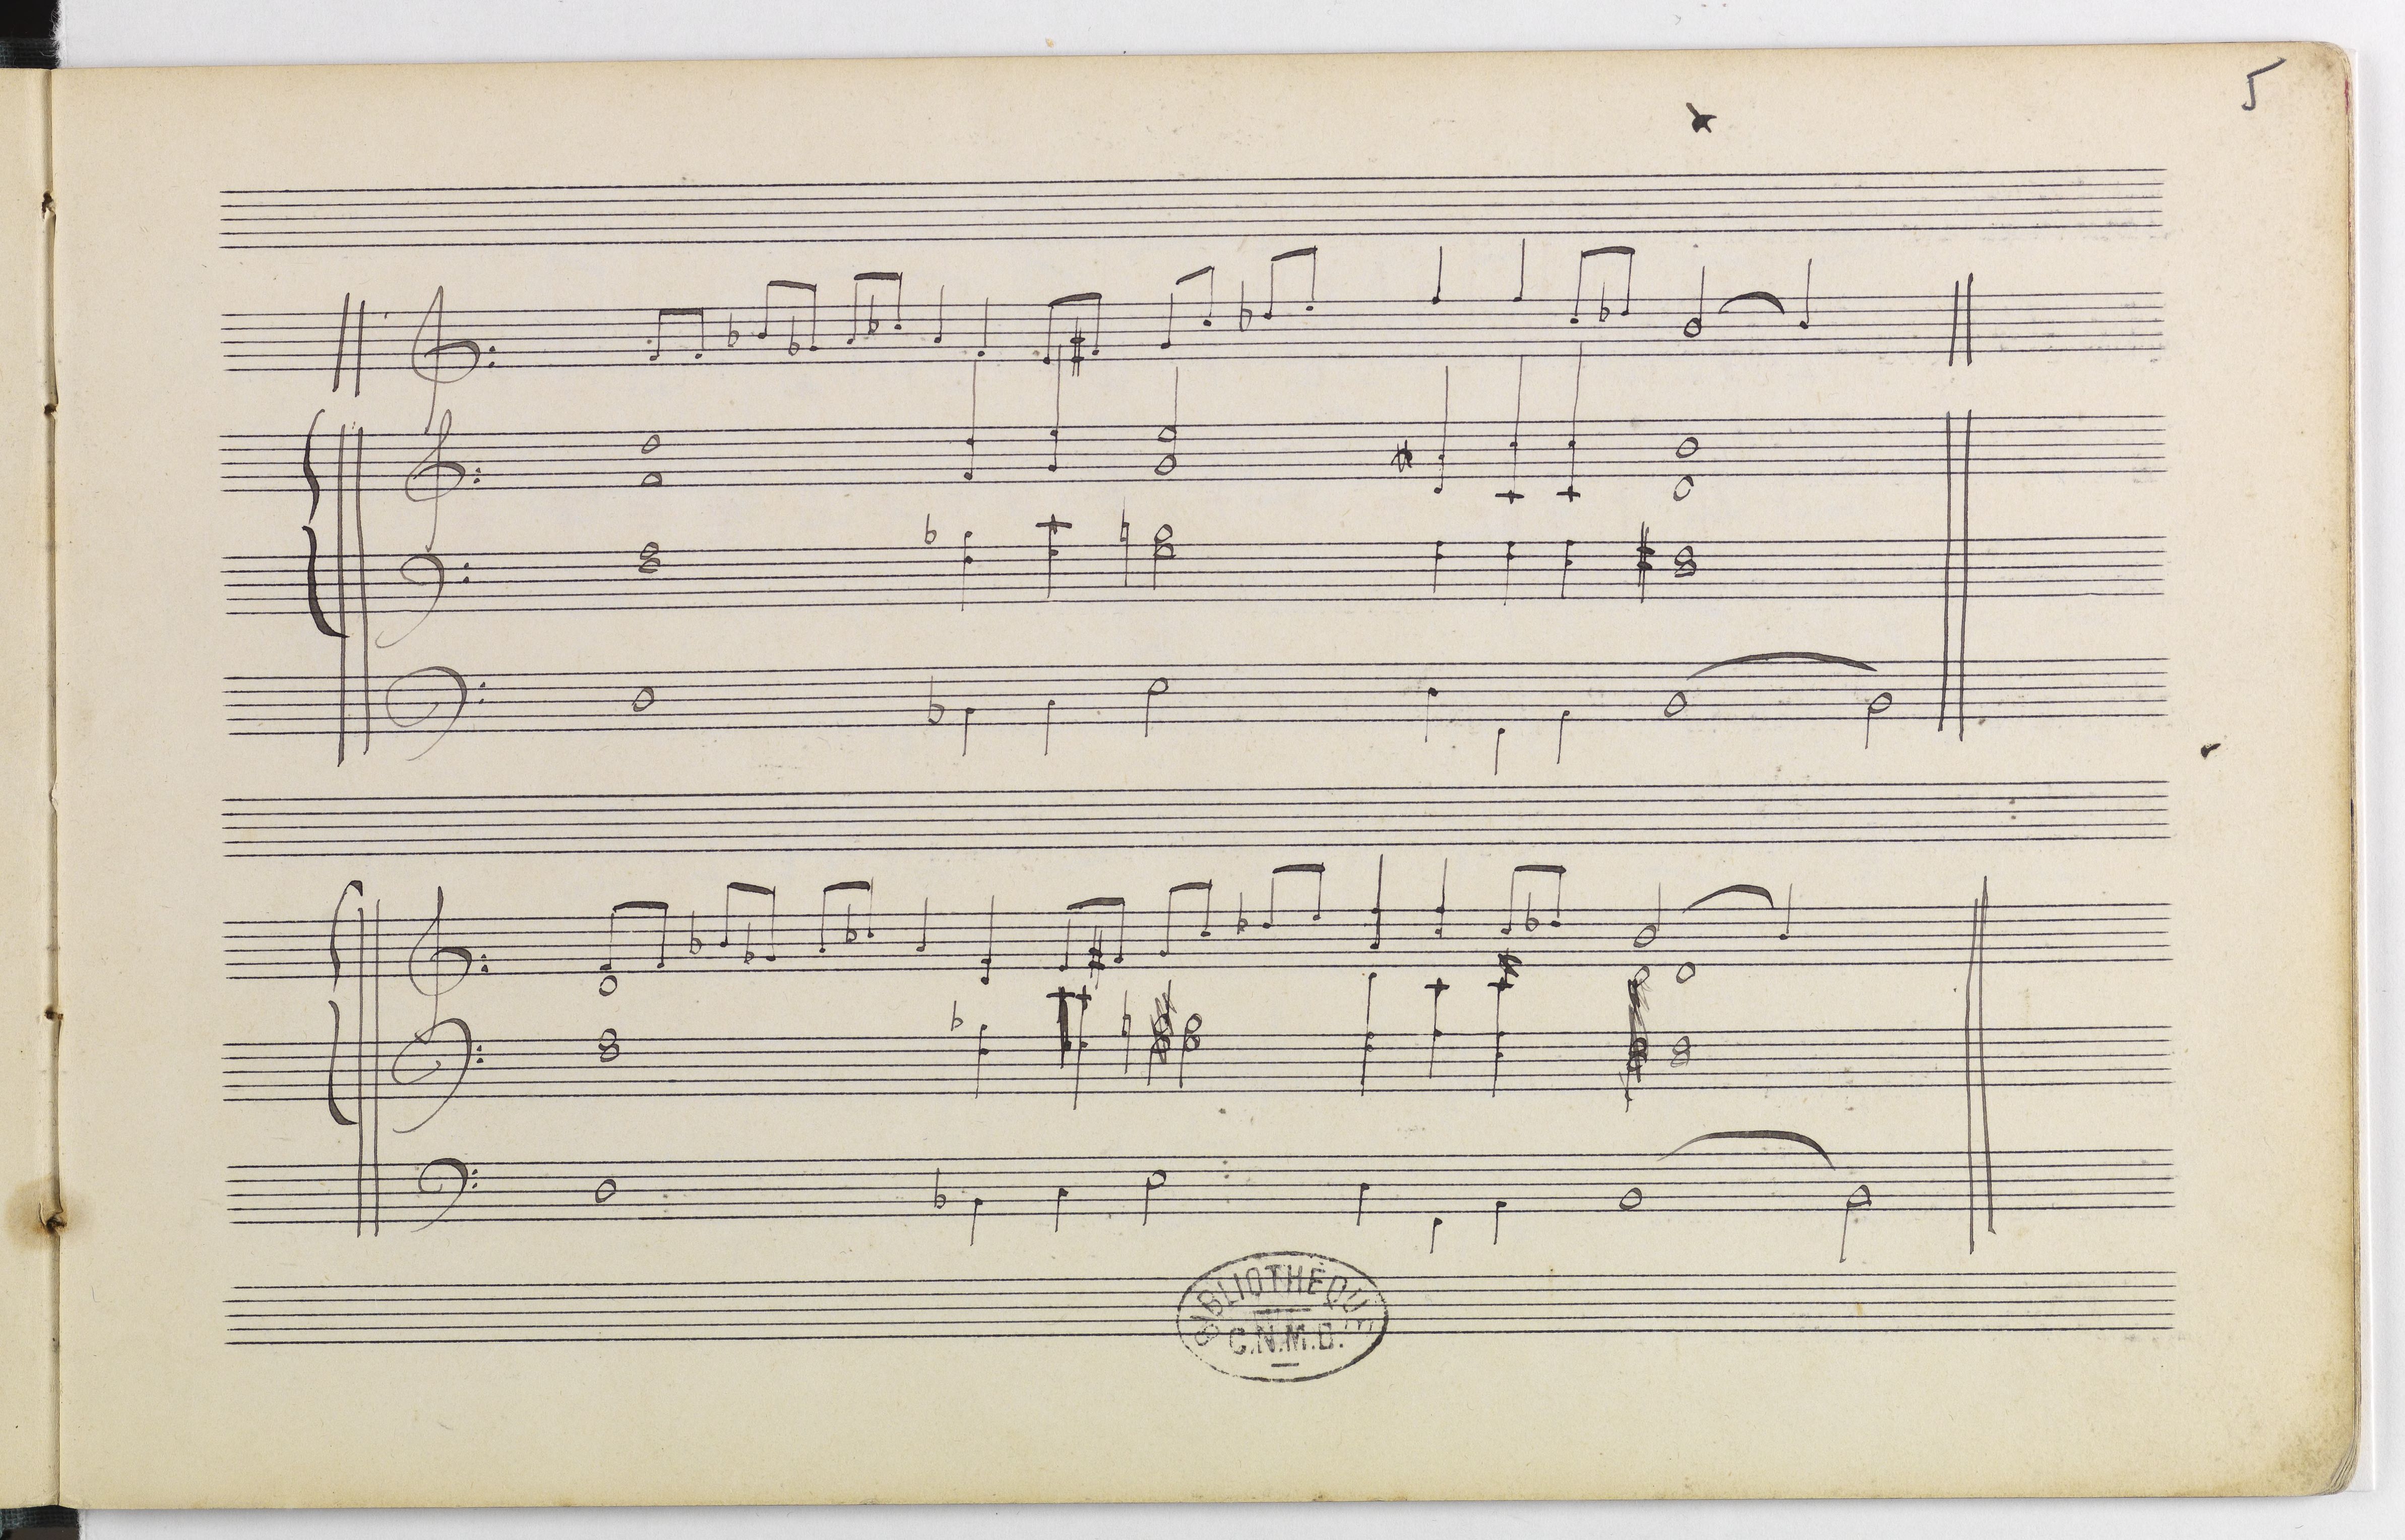 5
BIBLIOTHÈQUE
C.N.M.D.